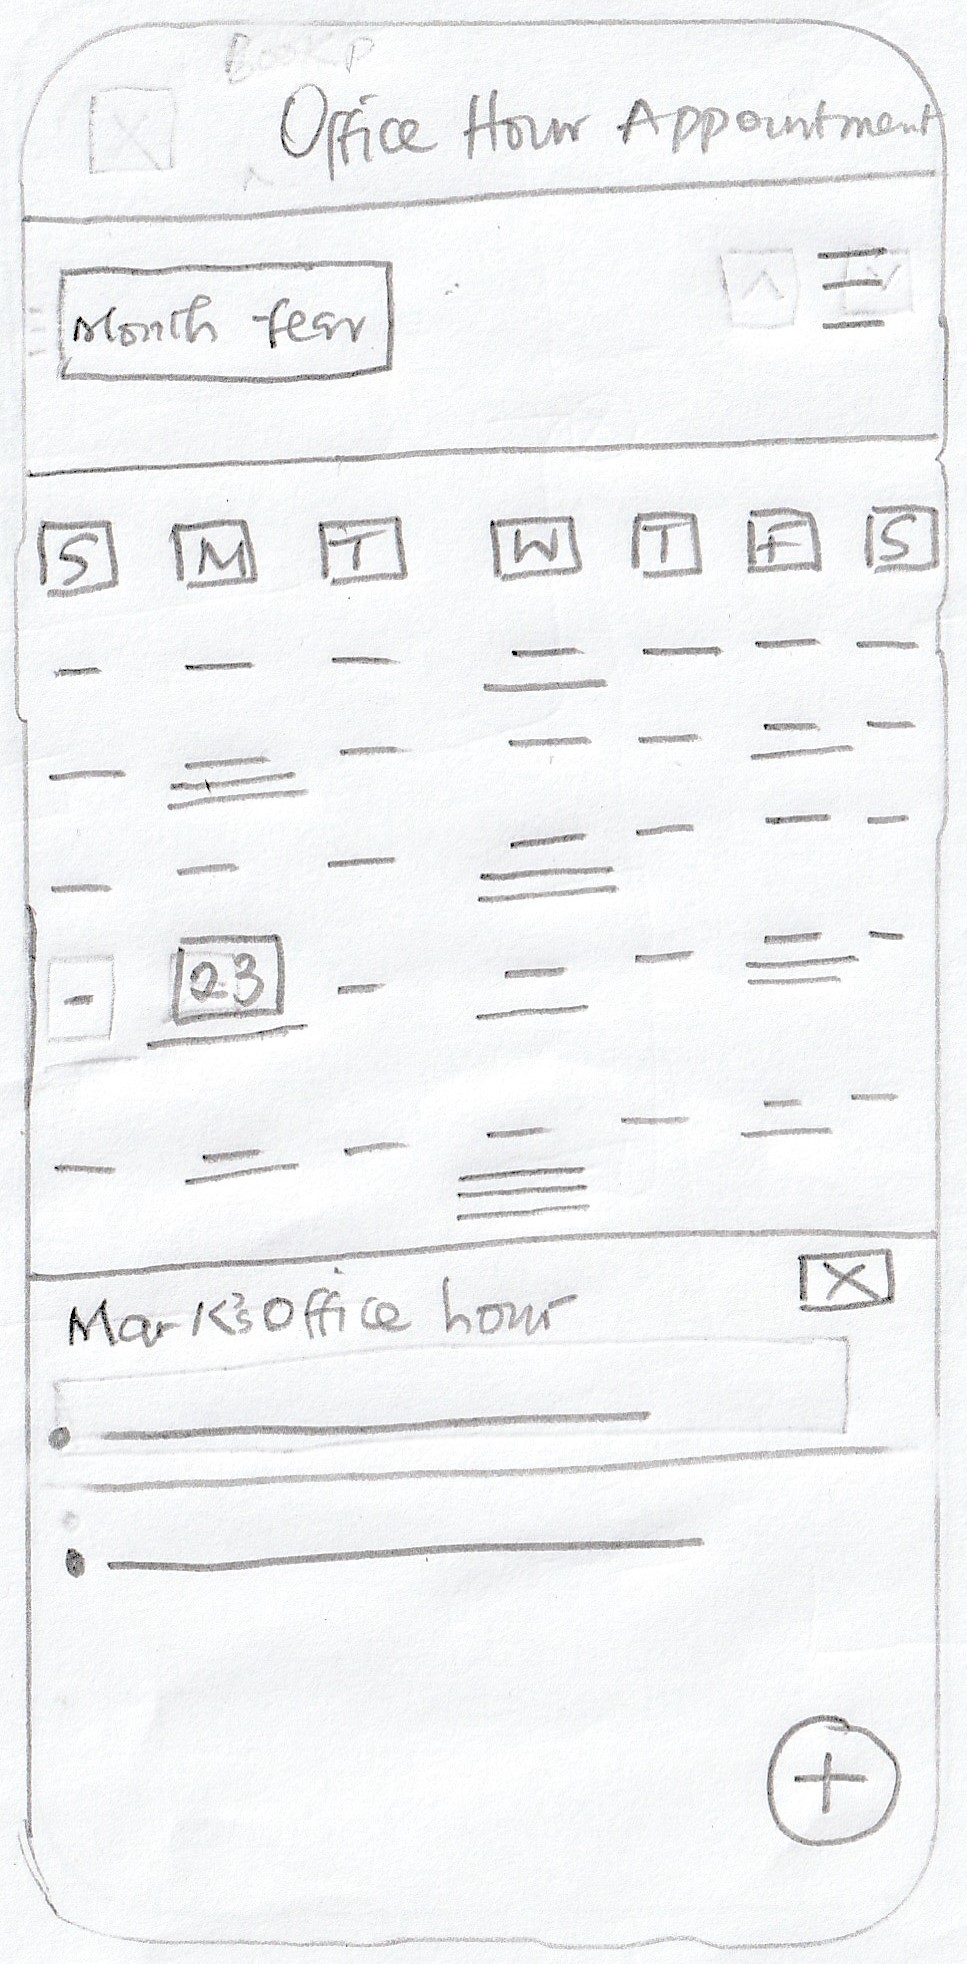 Book P
Office Hour Appointment
Month Year
S M T W T F S
23
Mark's Office hour